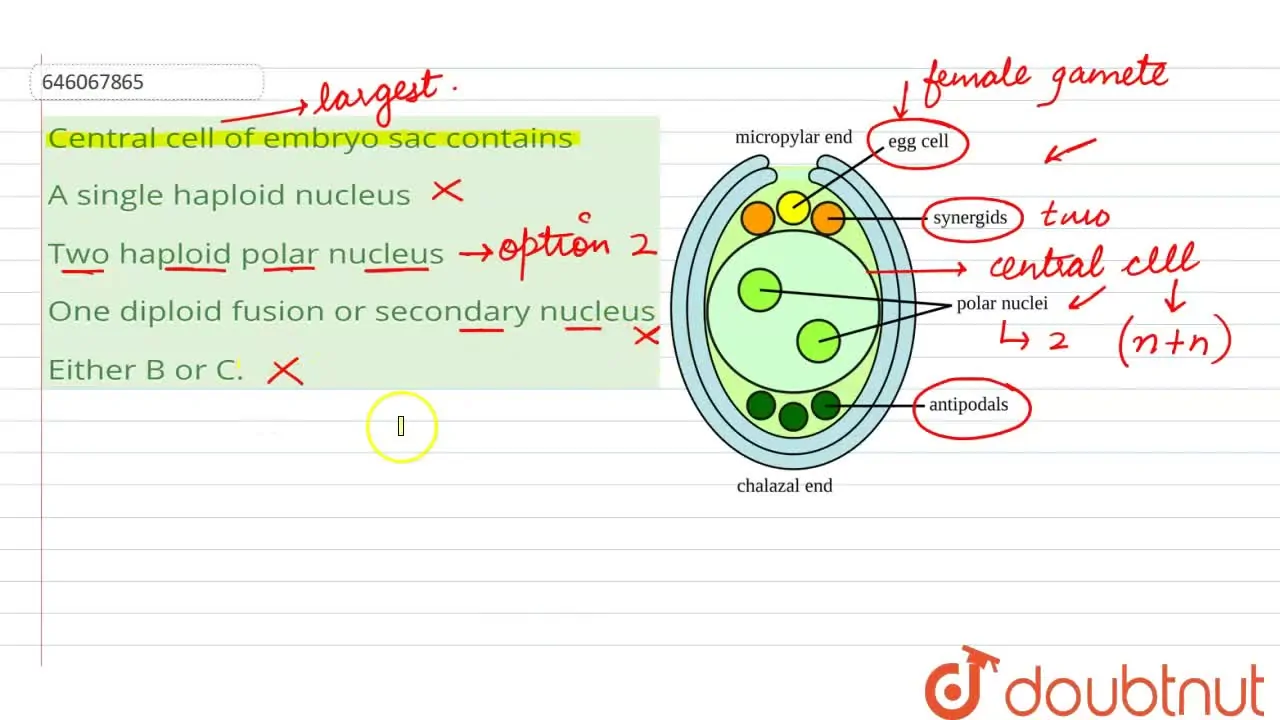 646067865
largest.
Central cell of embryo sac contains
A single haploid nucleus
Two haploid polar nucleus → option 2
One diploid fusion or secondary nucleus
Either B or C.
female gamete
micropylar end
egg cell
synergids two
central cell
polar nuclei
2 (n+n)
antipodals
chalazal end
doubtnut